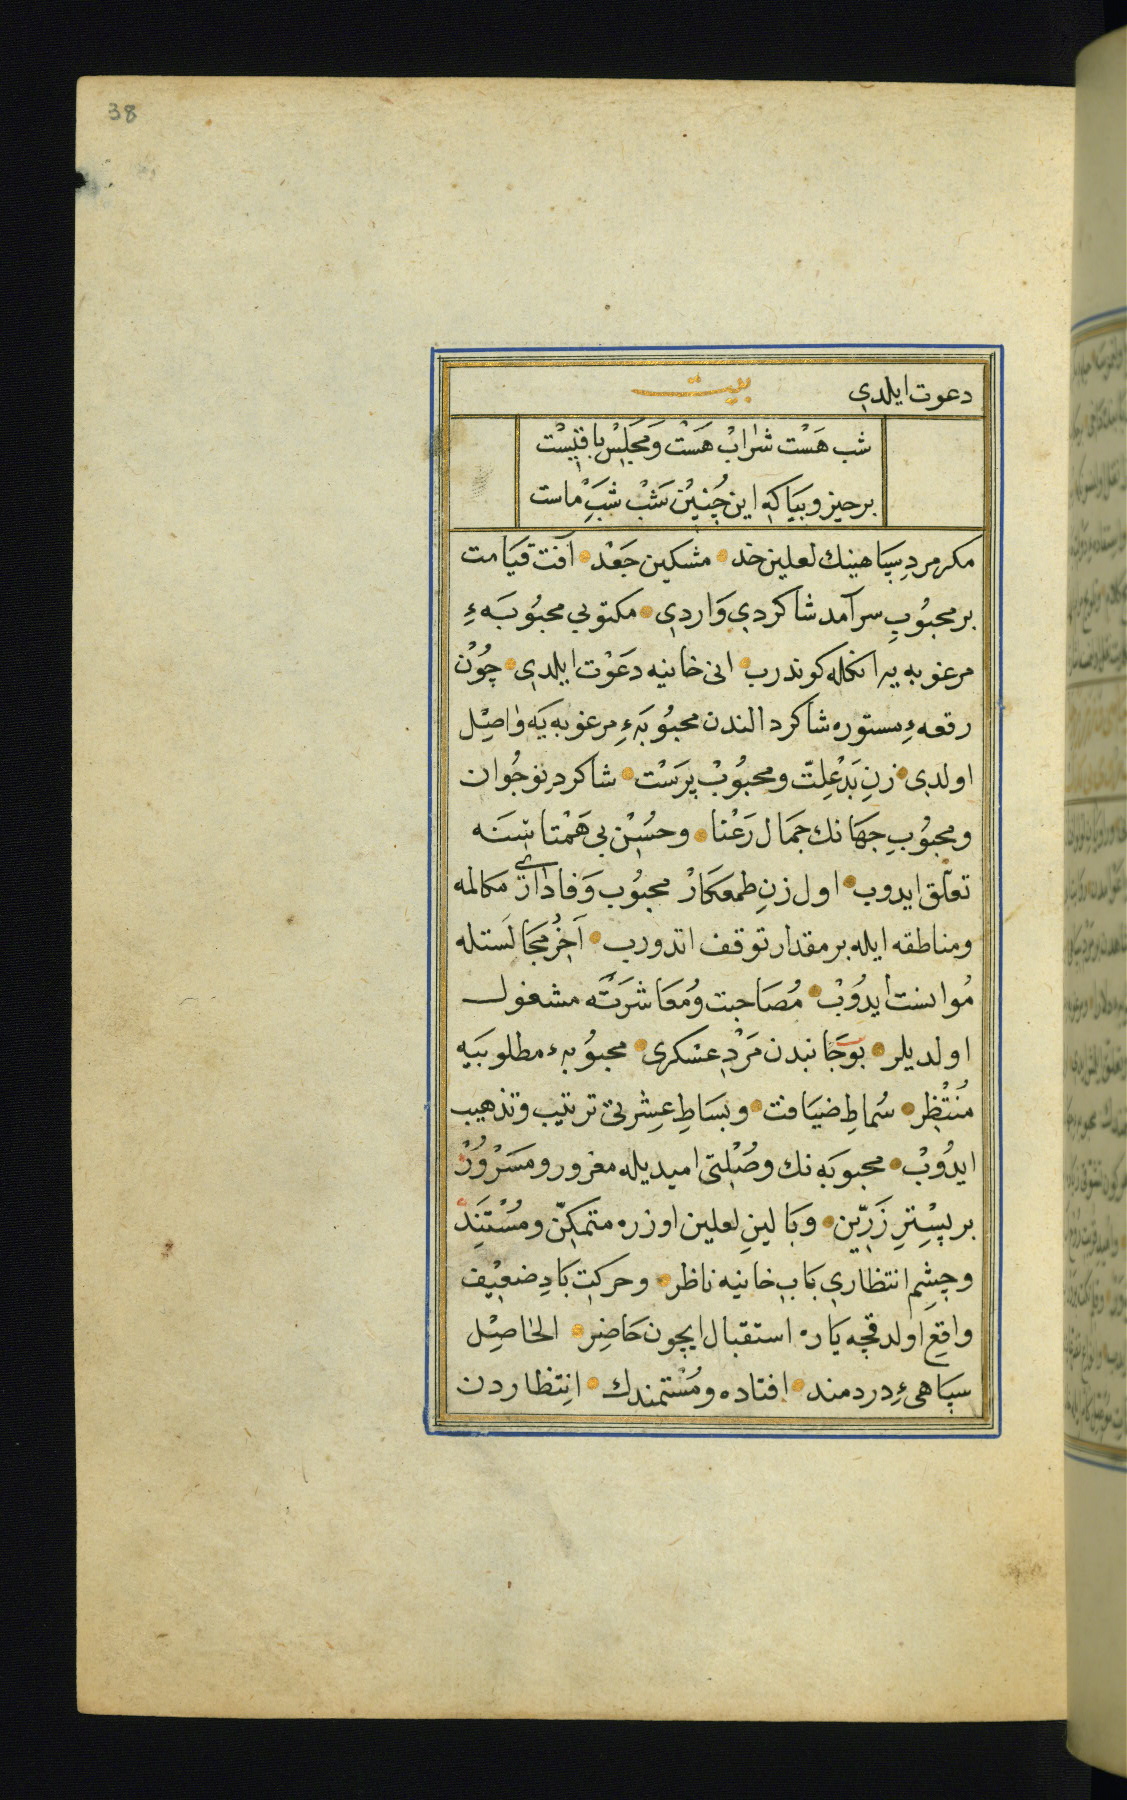 38
دعوت ایلدی بیت
شب هَسْت شرابْ هَسْت وَمَجْلِسْ باقیسْت
برخیز و بَیَا كهِ این چُنِیْن شَبْ شَبِْ ماست
مكر مردِ سپاهینك لعلین خد مشكین جَعْد آفت قیَامت
بر محبُوبِ سرآمد شاكردی وَاردی مكتوبی محبُوبَهءِ
مرغوبه یه انكله كوندرب انی خانیه دعَوْت ایلدی چُوْن
رقعهءِ مستوره شاكرد الندن محبُوبَهءِ مرغوبه یَه وٰاصِل
اولدی زنِ بَدْعِلتّ ومحبُوبْ پرَسْت شاكردِ نوجُوان
ومحبُوبِ جهَانك جمَال رَعْنا وحسُن بی هَمْتا سنَه
تعلّق ایدوب اول زنِ طمعكارْ محبُوب وَفادارْی مكالمه
ومناطقه ایله بر مقدار توقف اتدورب آخِرْ مجَالَستله
مُوانست ایدُوبْ مُصَاحبت ومُعَاشرَتَه مشغول
اولدیلر بو جَانبدن مَرْدِ عسْكری محبوُبهء مطلوبَیه
مُنْتْظِر سُماطِ ضیَافت وبسَاطِ عِشرتی ترتیب وتذهیب
ایدُوبْ محبوبَه نك وصُلتی امیدیله مغرور ومسَرْوُرْ
بر بِسْترِ زَرّین وبَالینِ لعلین اوزره متمكّن ومُسْتَندِ
وچشِم انتظاری بَابِ خانیه ناظر وحركتِ بَادِ ضعِیْف
واقِع اولدقجه یَاره استقبال ایچون حَاضِر الحٰاصِل
سپَاهیءِ دردمند افتاده ومُسْتمندك انِتظاردن